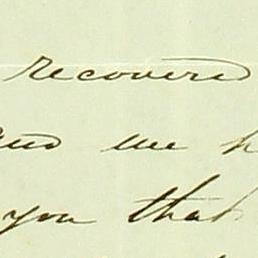 recovered
and we h
you that